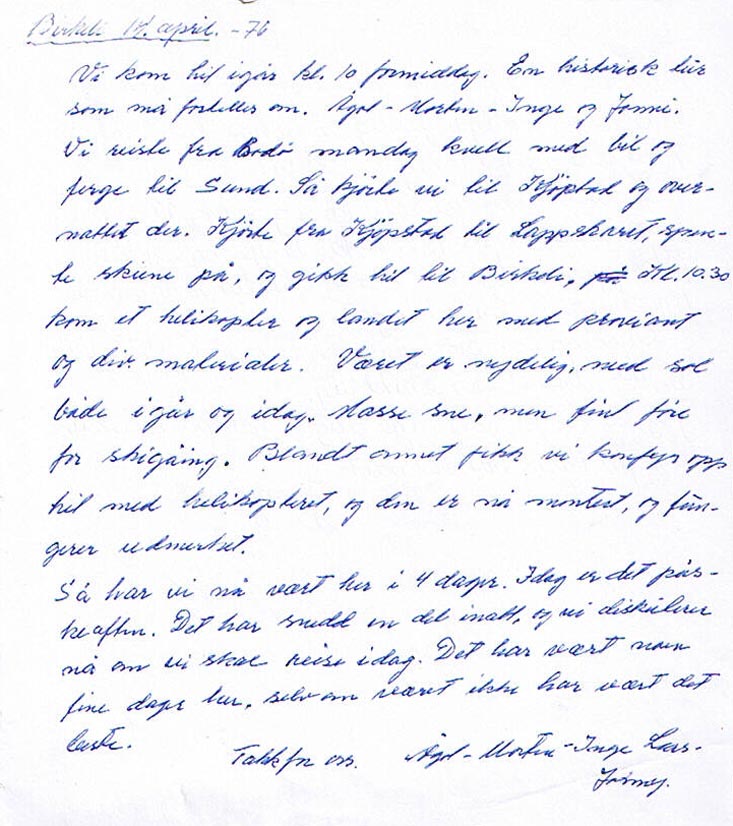 Birkeli 14. april. -76
Vi kom hit igår kl. 10 formiddag. En historisk tur
som må fortelles om. Ågot - Morten - Inge og Jonni.
Vi reiste fra Bodø mandag kveld med bil og
ferge til Sund. Så kjörte vi til Kjöpstad og over-
nattet der. Kjörte fra Kjöpstad til Lappskaret, spen-
te skiene på, og gikk hit til Birkeli, Kl. 10.30
kom et helikopter og landet her med proviant
og div. materialer. Været er nydelig, med sol
både igår og idag. Masse sne, men fint före
for skigåing. Blandt annet fikk vi komfyr opp
hit med helikopteret, og den er nå montert, og fun-
gerer udmerket.
Så har vi nå vært her i 4 dager. Idag er det pås-
keaften. Det har snedd en del inatt, og vi diskuterer
nå om vi skal reise idag. Det har vært noen
fine dager her, selv om været ikke har vært det
beste.
Takk for oss. Ågot - Morten - Inge Lars-